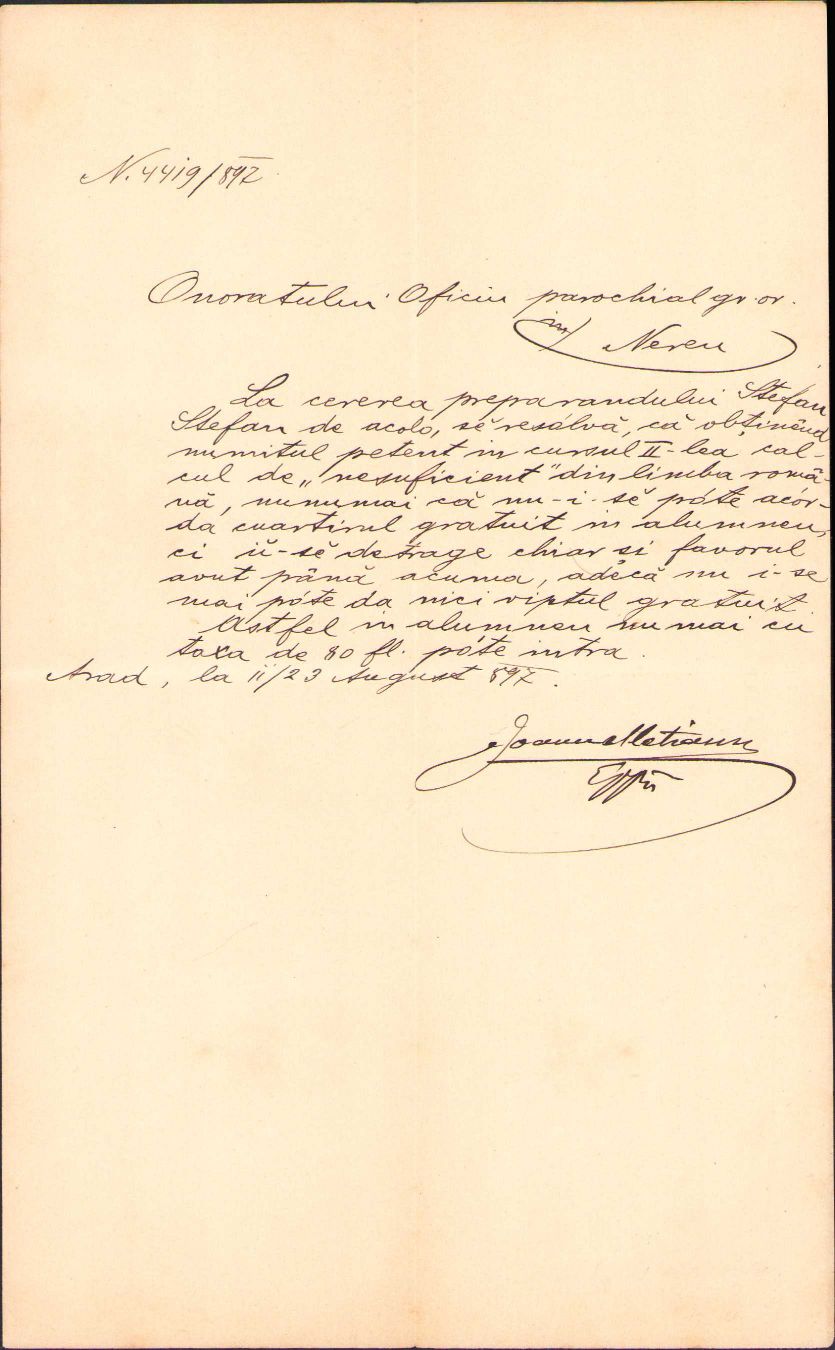 N. 4419/897
Onoratului Oficiu parochial gr. or.
in
Nereu
La cererea preparandului Stefan
Stefan de acolo, sĕ resólvă, că obținênd
numitul petent in cursul II-lea cal-
cul de „nesuficient" din limba româ-
nă, nunumai că nu-i-sĕ póte acór-
da cuartirul gratuit in alumneu,
ci ii-sĕ detrage chiar si favorul
avut până acuma, adĕcă nu i-se
mai póte da nici viptul gratuit.
Astfel in alumneu numai cu
taxa de 80 fl. póte intra.
Arad, la 11/23 August 897.
Joann Metianu
Eppu